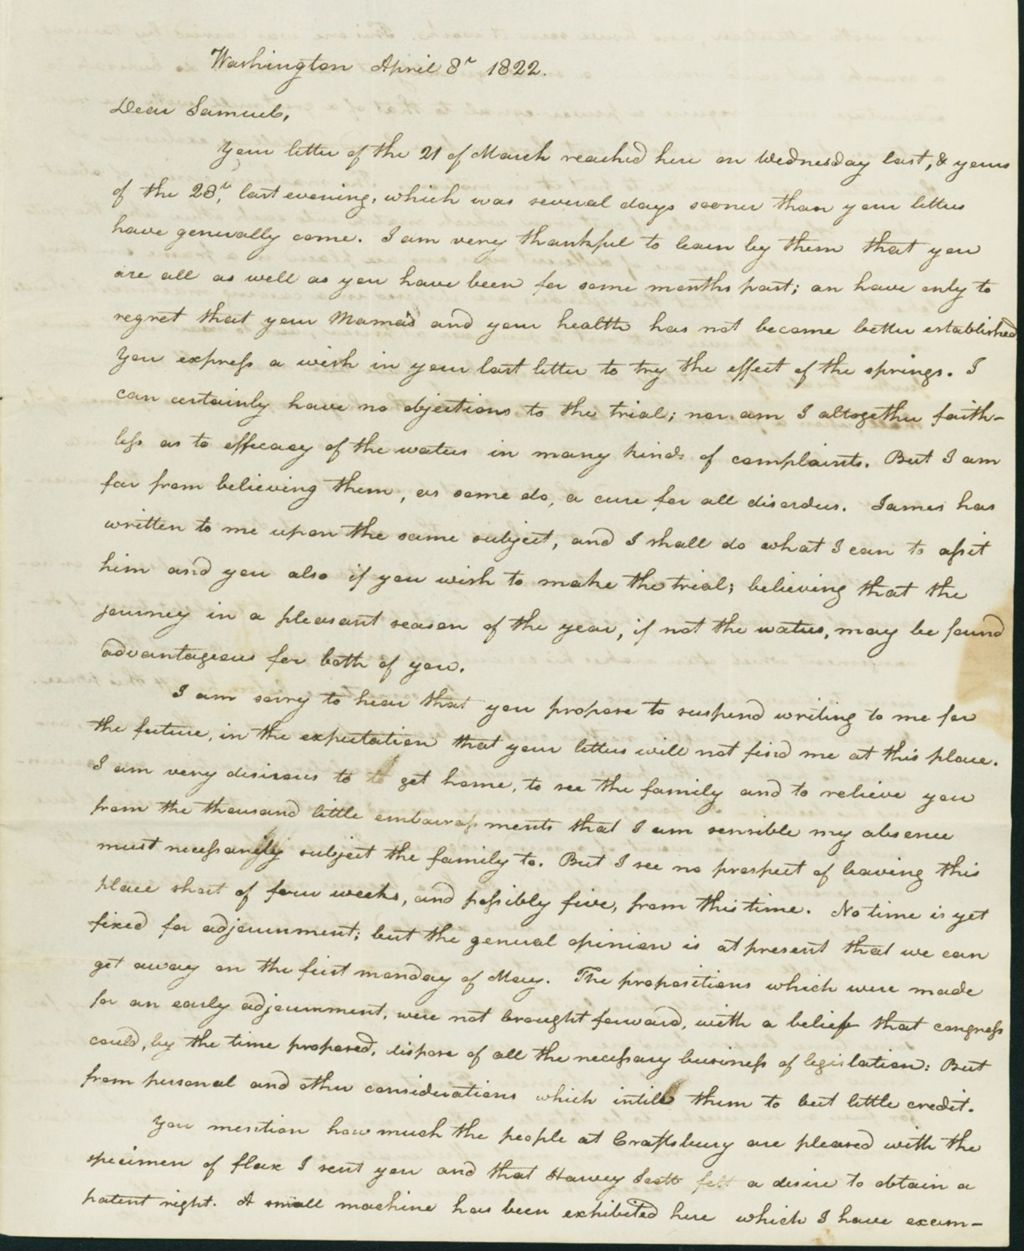 Washington April 8th 1822.
Dear Samuel,
Your letter of the 21 of March reached here on Wednesday last, & yours
of the 28th, last evening, which was several days sooner than your letters
have generally come. I am very thankful to learn by them that you
are all as well as you have been for some months past; an have only to
regret that your Mama's and your health has not become better established
You express a wish in your last letter to try the effect of the springs. I
can certainly have no objections to the trial; nor am I altogether faith-
less as to efficacy of the waters in many kinds of complaints. But I am
far from believing them, as some do, a cure for all disorders. James has
written to me upon the same subject, and I shall do what I can to assist
him and you also if you wish to make the trial; believing that the
journey in a pleasant season of the year, if not the waters, may be found
advantageous for both of you.
I am sorry to hear that you propose to suspend writing to me for
the future, in the expectation that your letters will not find me at this place.
I am very desirous to get home, to see the family and to relieve you
from the thousand little embarrassments that I am sensible my absence
must necessarily subject the family to. But I see no prospect of leaving this
place short of four weeks, and possibly five, from this time. No time is yet
fixed for adjournment; but the general opinion is at present that we can
get away on the first monday of May. The propositions which were made
for an early adjournment, were not brought forward, with a belief that congress
could, by the time proposed, dispose of all the necessary business of legislation: But
from personal and other considerations which intitle them to but little credit.
You mention how much the people at Craftsbury are pleased with the
specimen of flax I sent you and that Harvey Scott felt a desire to obtain a
patent right. A small machine has been exhibited here which I have exam-